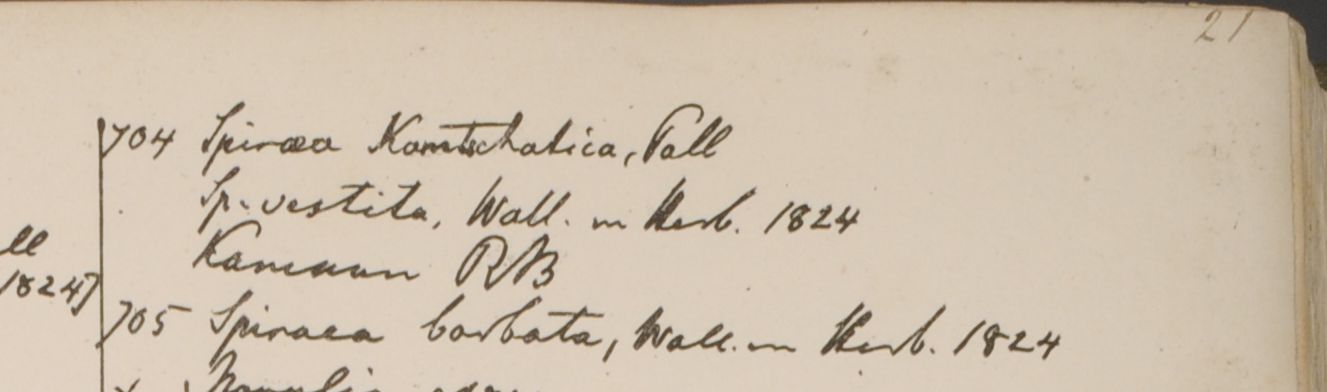 21
704 Spiræa Kamtschatica, Pall
Sp. vestita, Wall. in Herb. 1824
Kamaun RB
ll
1824)
705 Spiraea barbata, Wall. in Herb. 1824